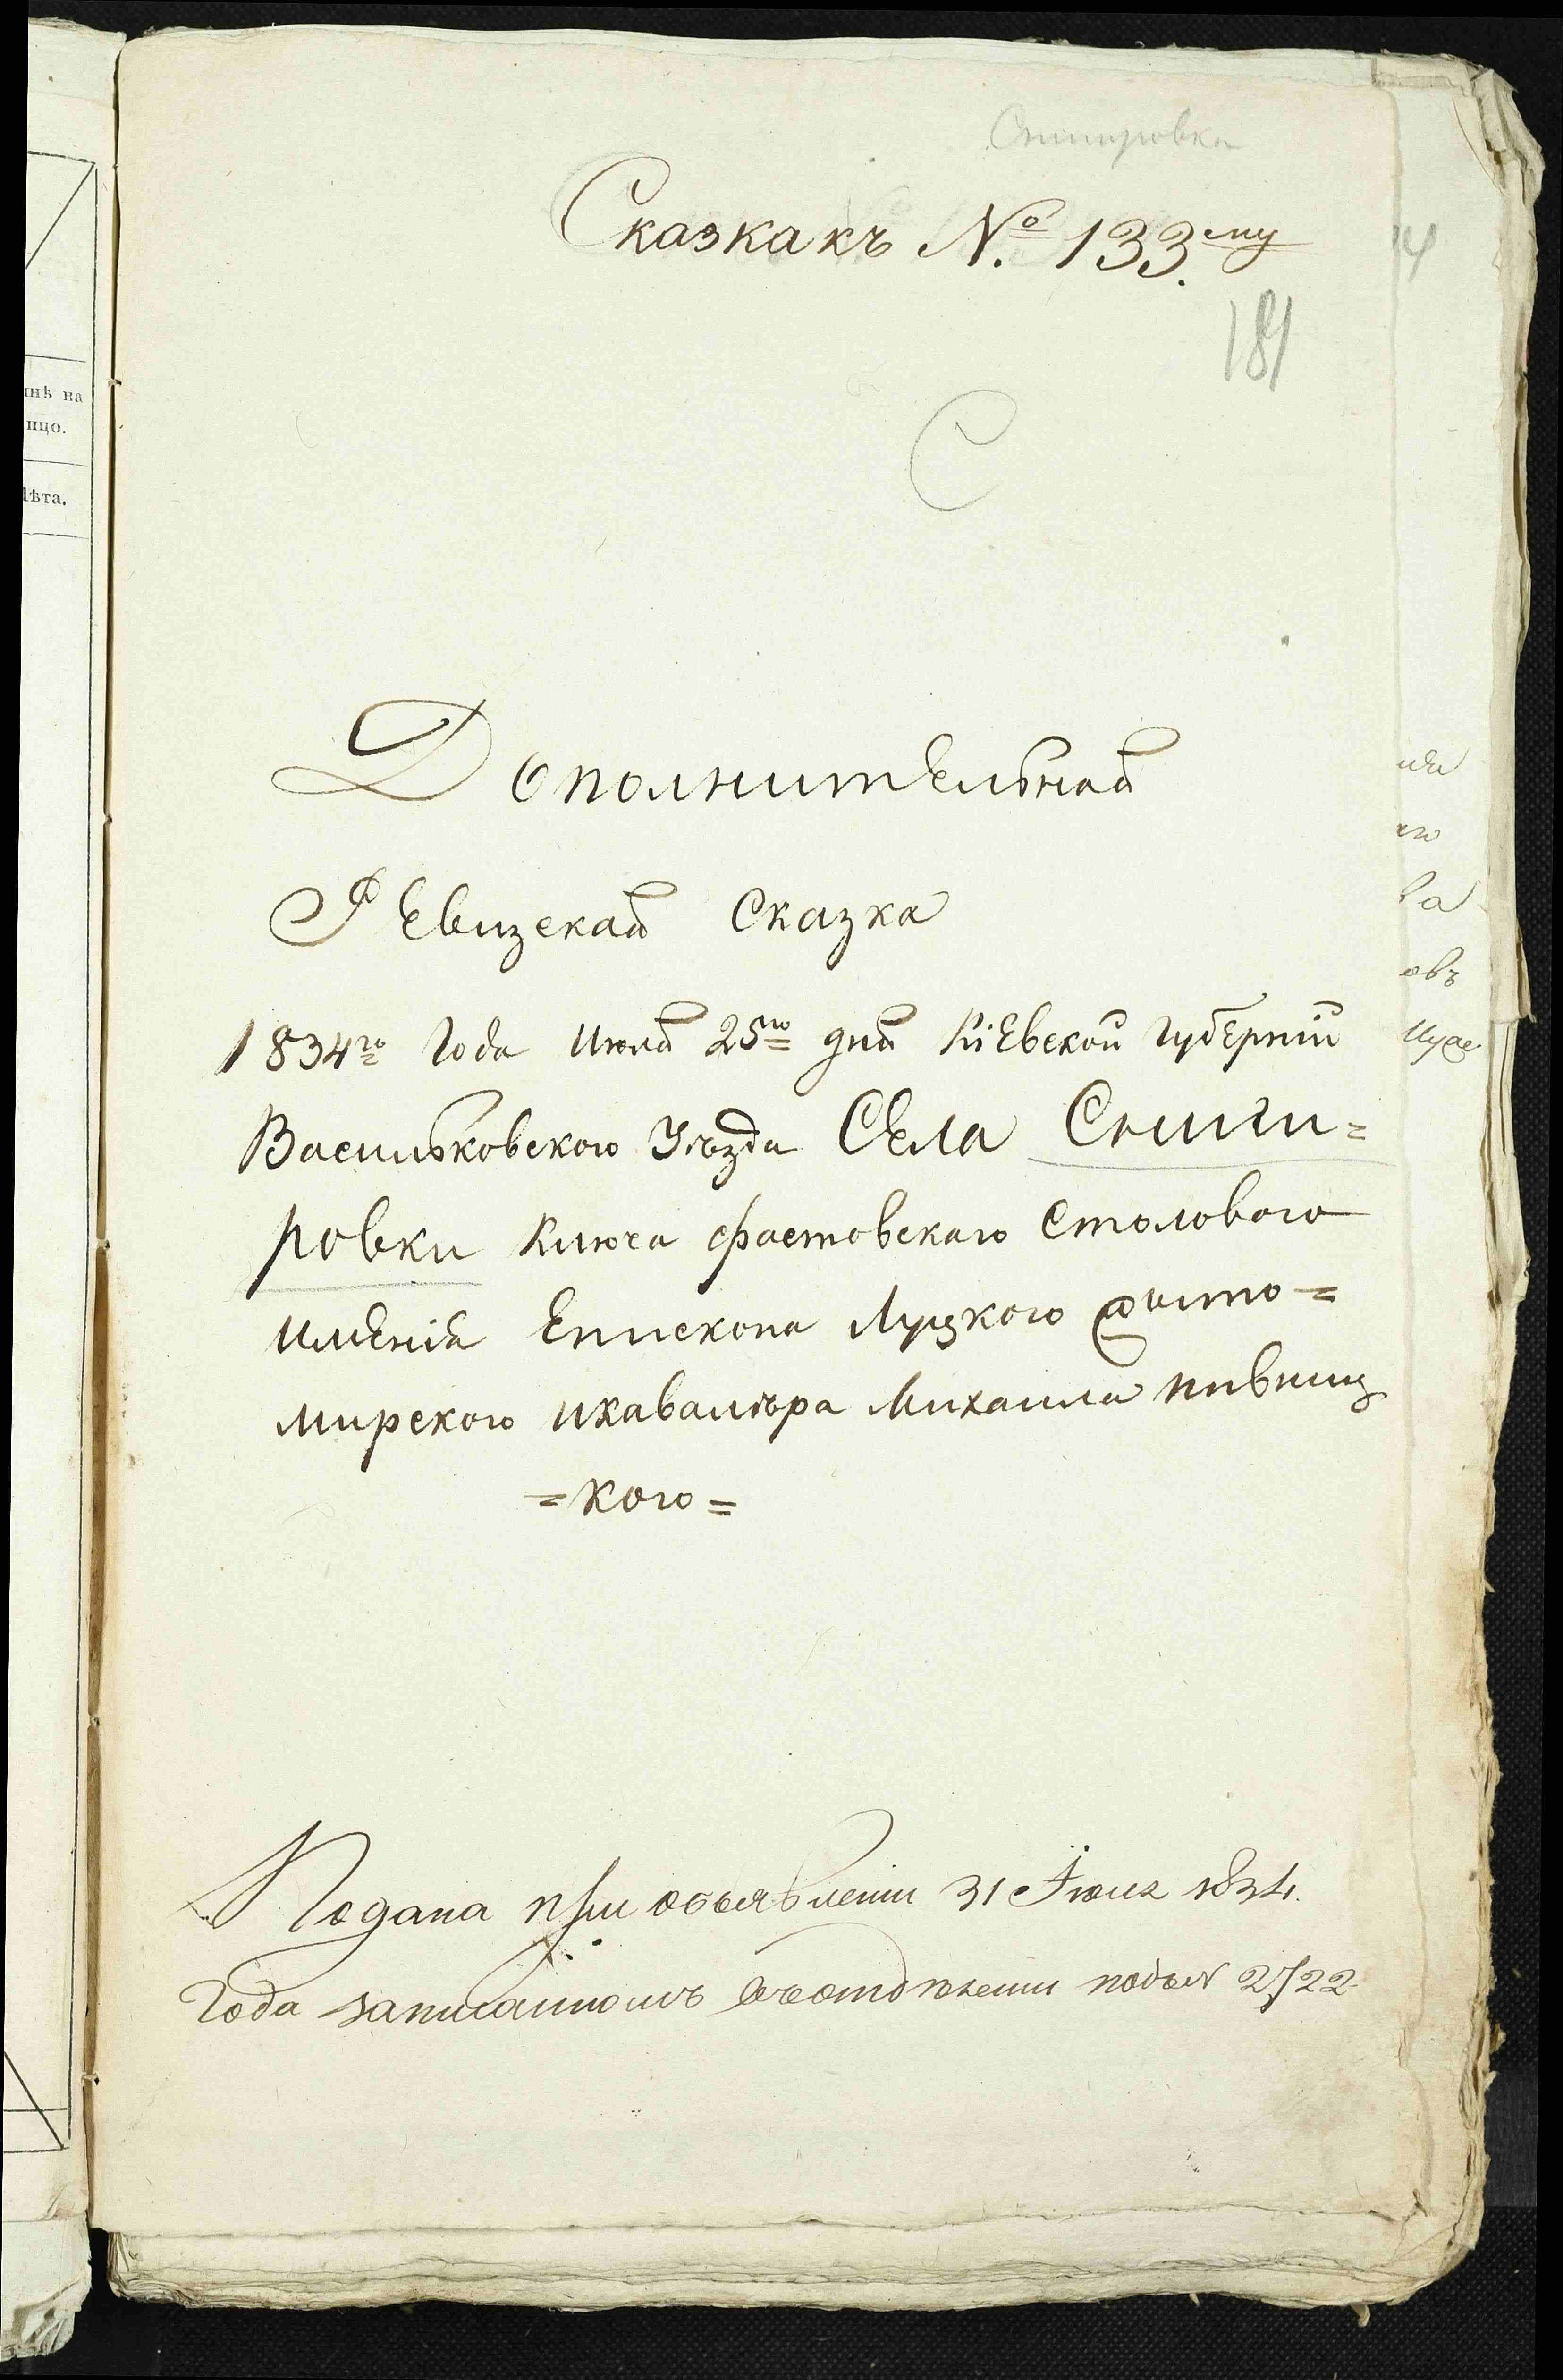 Снигуровка
Сказка къ №. 133.ему
181
С
Дополнительная
Ревизская Сказка
1834го Года Июля 25го дня Кіевской Губерніи
Васильковского Уѣзда Села Сниги=
ровки Ключа Фастовскаго Столового
Имѣнія Епископа Луцкого Жито=
мирского и кавалѣра Михаила Пивниц
=кого=
Подана при объявленіи 31 Іюля 1834.
Года записанномъ въ отдѣленіи подъ N 2722